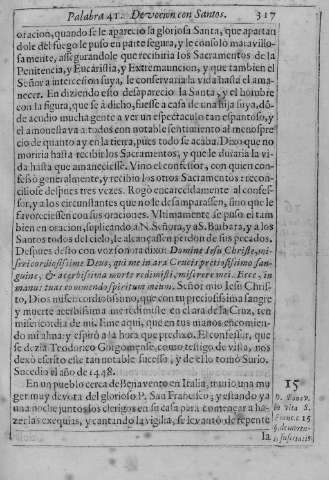 Palabra 41. Devocion con Santos. 317
oracion, quando se le aparecio la gloriosa Santa, que apartan
dole del fuego le puso en parte segura, y le consolò maravillo-
samente, assegurandole que recibiria los Sacramentos de la
Penitencia, y Eucaristia, y Extremauncion, y que tambien el
Señor a intercession suya, le conservaria la vida hasta el ama-
necer. En diziendo esto desaparecio la Santa, y el hombre
con la figura, que se à dicho, fuesse a casa de una hija suya, dō-
de acudio mucha gente a ver un espectaculo tan espantoso, y
el amonestava a todos con notable sentimiento al menospre
cio de quanto ay en la tierra, pues todo se acaba. Dixo que no
moriria hasta recibir los Sacramentos, y que le duraria la vi-
da hasta que amaneciesse. Vino el confessor, con quien con-
fessò generalmente, y recibio los otros Sacramentos: recon-
ciliose despues tres vezes. Rogò encarecidamente al confes-
sor, y a los circunstantes que no le desamparassen, sino que le
favoreciessen con sus oraciones. Ultimamente se puso el tam
bien en oracion, suplicando a N. Señora, y a S. Barbara, y a los
Santos todos del cielo, le alcançassen perdon de sus pecados.
Despues desto con voz sonora dixo: Domine Iesu Christe, mi-
sericordiosissime Deus, qui me in ara Crucis pretiosissimo san-
guine, & acerbissima morte redimisti, miserere mei. Ecce, in
manus tuas commendo spiritum meum. Señor mio Iesu Chris-
to, Dios misericordiosissimo, que con tu preciosissima sangre
y muerte acerbissima me redimiste en el ara de la Cruz, ten
misericordia de mi. Eme aqui, que en tus manos encomien-
do mi alma: y espirò a la hora que predixo. El confessor, que
se dezia Teodorico Gorgomense, como testigo de vista, nos
dexò escrito este tan notable sucesso, y de el lo tomò Surio.
Sucedio el año de 1448.
En un pueblo cerca de Benavento en Italia, murio una mu
ger muy devota del glorioso P. San Francisco; y estando ya
una noche juntos los clerigos en su casa para començar a ha-
zer las exequias, y cantando la vigilia, se levantò de repente
la
15
in vita S.
Franc. c. 15